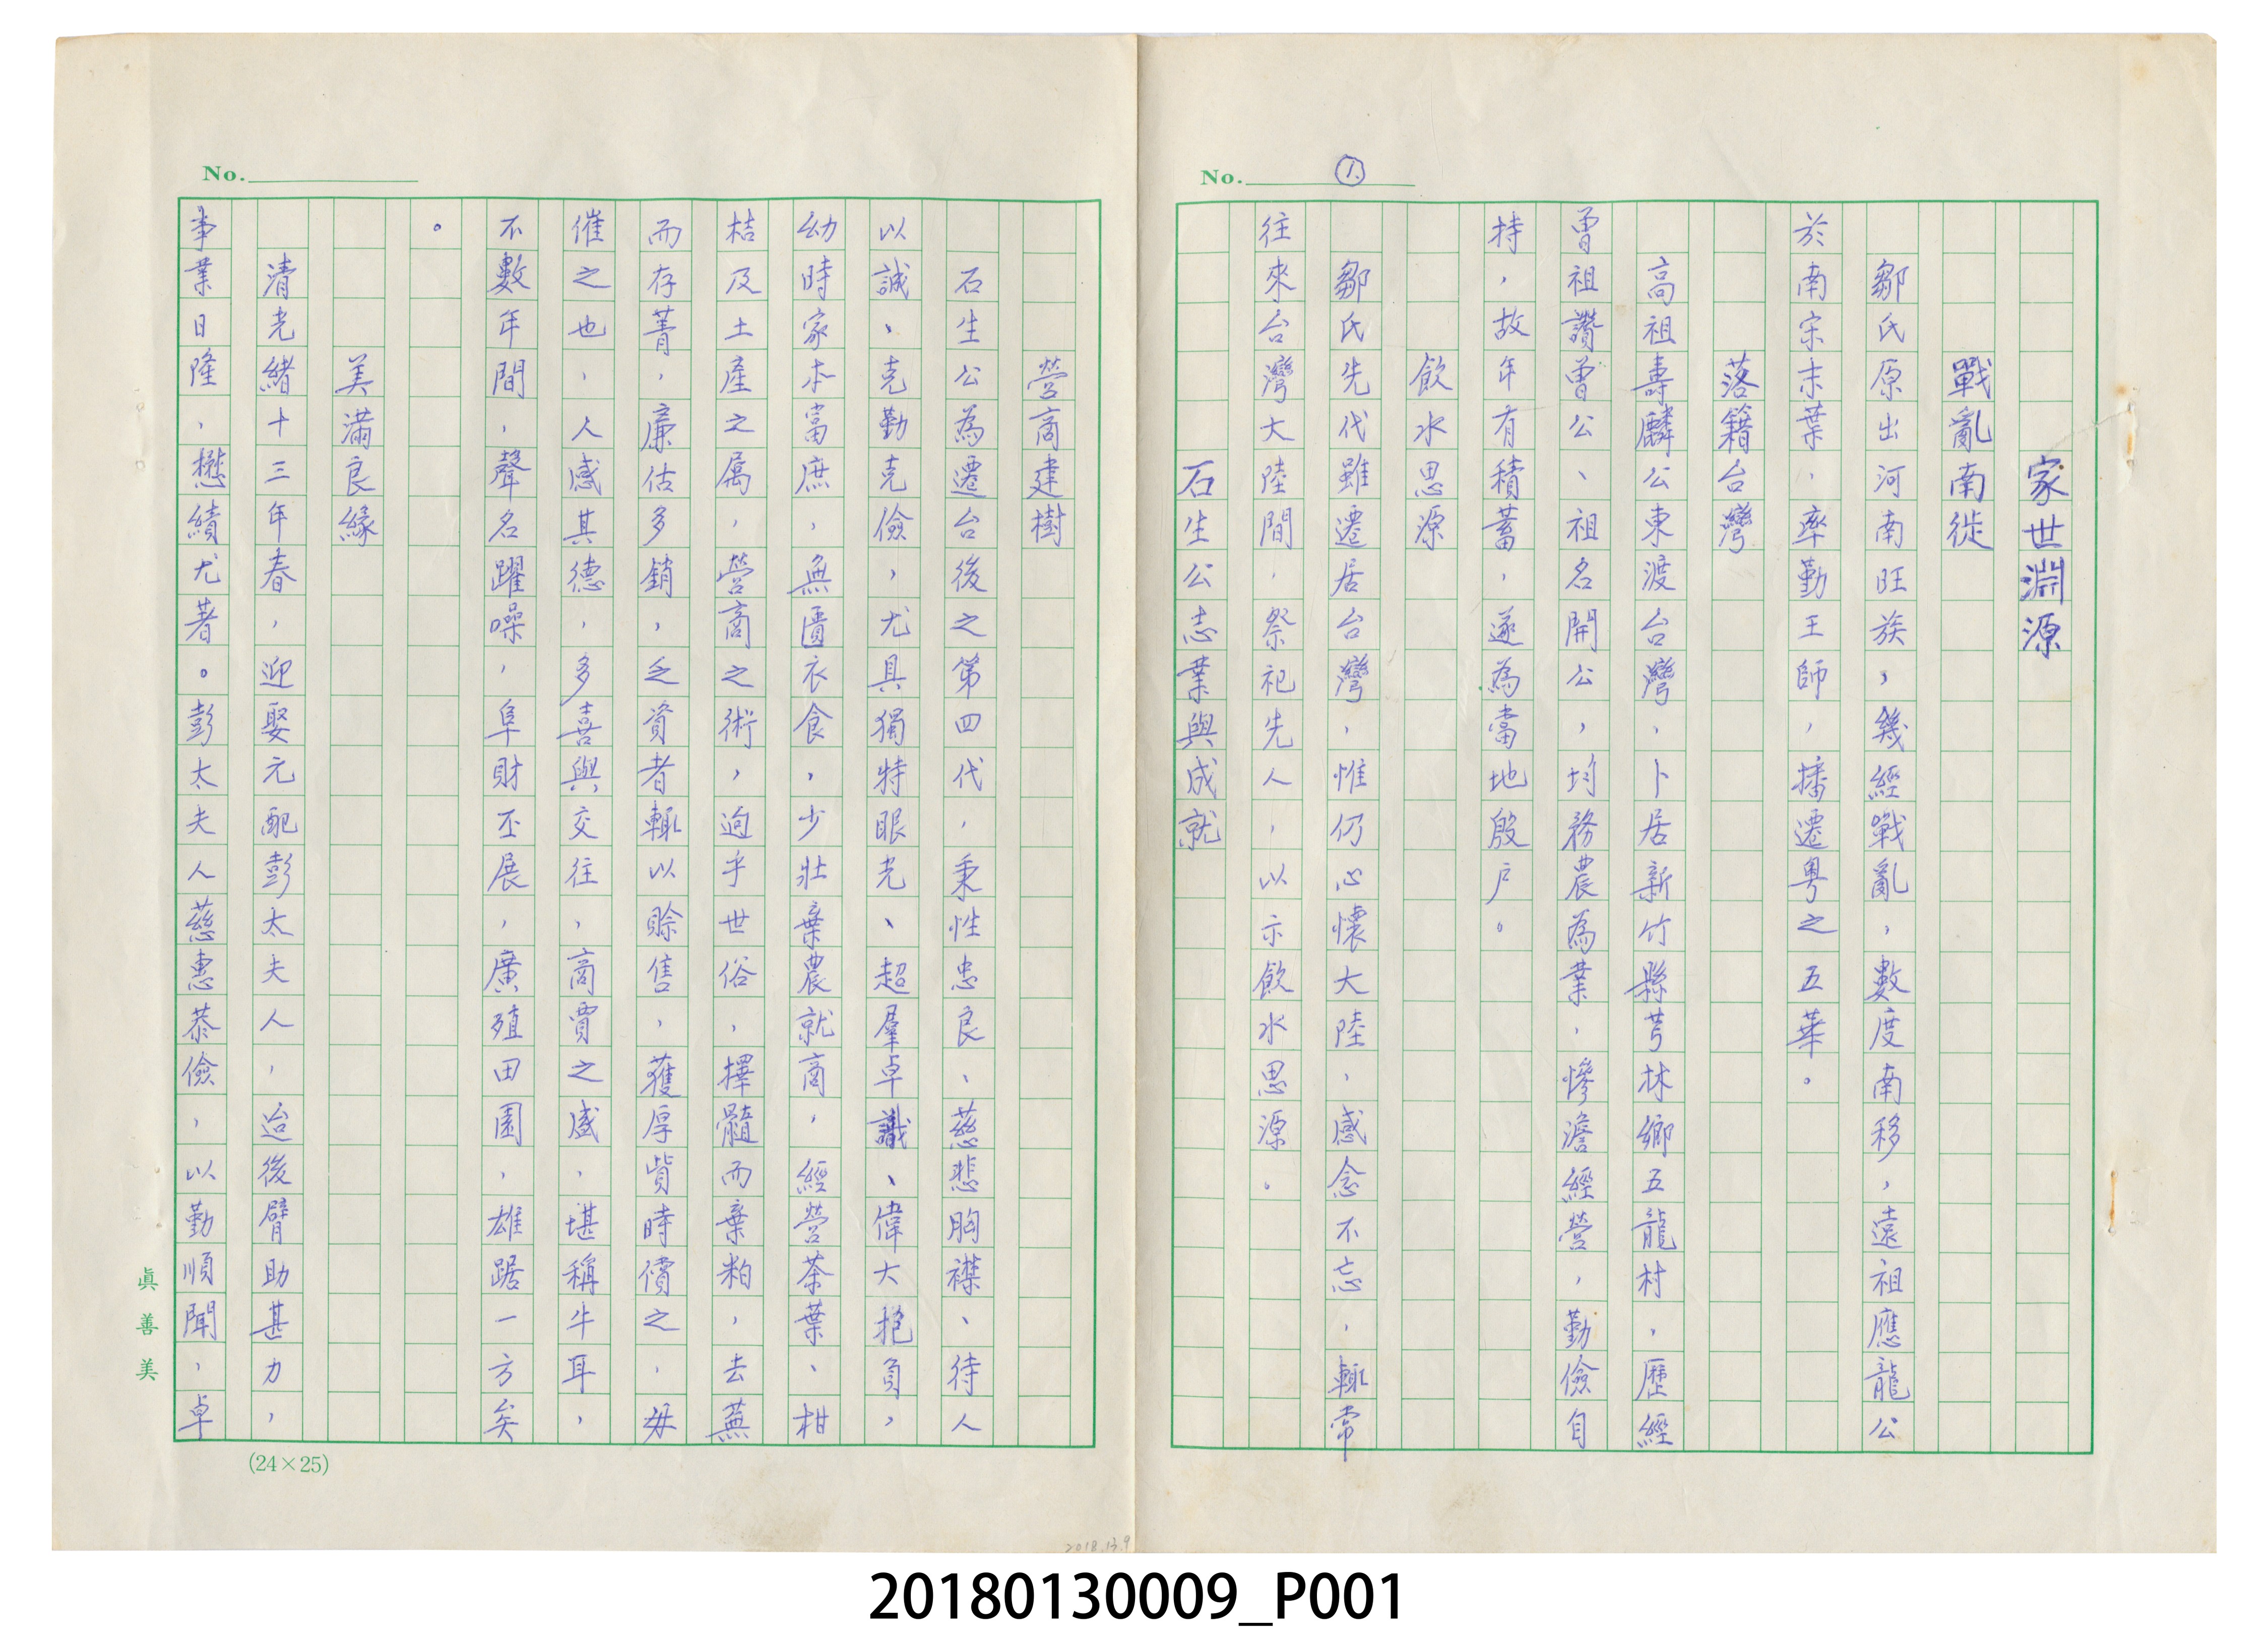 No. ①
家世淵源
戰亂南徙
鄒氏原出河南旺族，幾經戰亂，數度南移，遠祖應龍公
於南宋末葉，率勤王師，播遷粵之五華。
落籍台灣
高祖壽麟公東渡台灣，卜居新竹縣芎林鄉五龍村，歷經
曾祖讚曾公、祖名開公，均務農為業，慘澹經營，勤儉自
持，故年有積蓄，遂為當地殷戶。
飲水思源
鄒氏先代雖遷居台灣，惟仍心懷大陸，感念不忘，輒常
往來台灣大陸間，祭祀先人，以示飲水思源。
石生公志業與成就
No.
營商建樹
石生公為遷台後之第四代，秉性忠良、慈悲胸襟、待人
以誠、克勤克儉，尤具獨特眼光、超羣卓識、偉大抱負，
幼時家本富庶，無匱衣食，少壯棄農就商，經營茶葉、柑
桔及土產之属，營商之術，迥乎世俗，擇髓而棄粕，去蕪
而存菁，廉估多銷，乏資者輒以賒售，獲厚貲時償之，毋
催之也，人感其德，多喜與交往，商賈之盛，堪稱牛耳，
不數年間，聲名躍噪，阜財丕展，廣殖田園，雄踞一方矣
。
美滿良緣
清光緒十三年春，迎娶元配彭太夫人，迨後臂助甚力，
事業日隆，懋績尤著。彭太夫人慈惠恭儉，以勤順聞，卓
真善美
(24×25)
2018.13.9
20180130009_P001